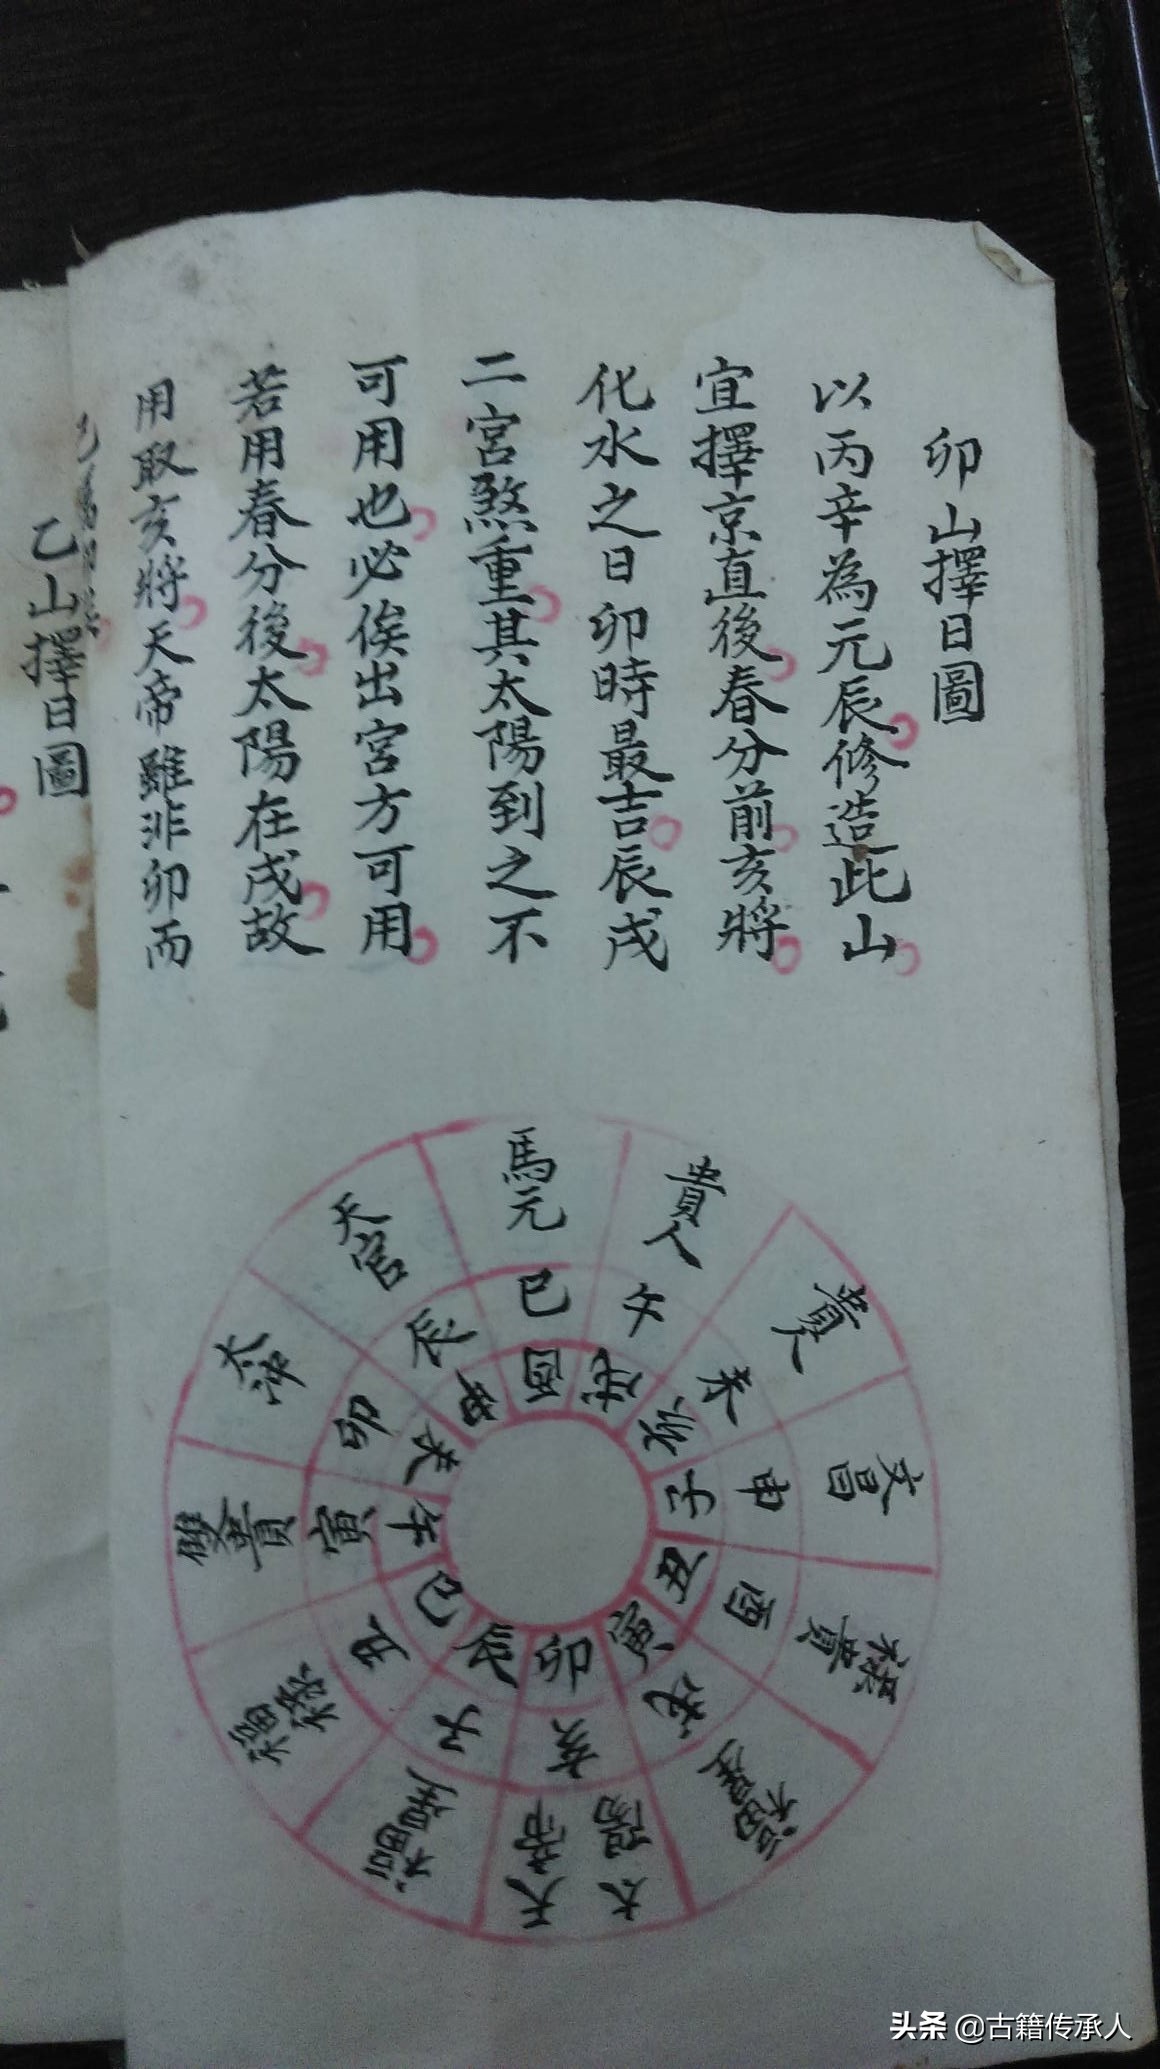 卯山擇日圖
以丙辛為元辰修造此山
宜擇京直後春分前亥將
化水之日卯時最吉辰戌
二宮煞重其太陽到之不
可用也必俟出宮方可用
若用春分後太陽在戌故
用取亥將天帝雖非卯而
乙山擇日圖
馬元
貴人
貴人
文昌
祿貴
福星
太陽
天帝
福星
福祿
雙貴
天官
巳
午
未
申
酉
戌
亥
子
丑
寅
卯
辰
酉
戌
亥
子
丑
寅
卯
辰
巳
午
未
申
头条 @古籍传承人